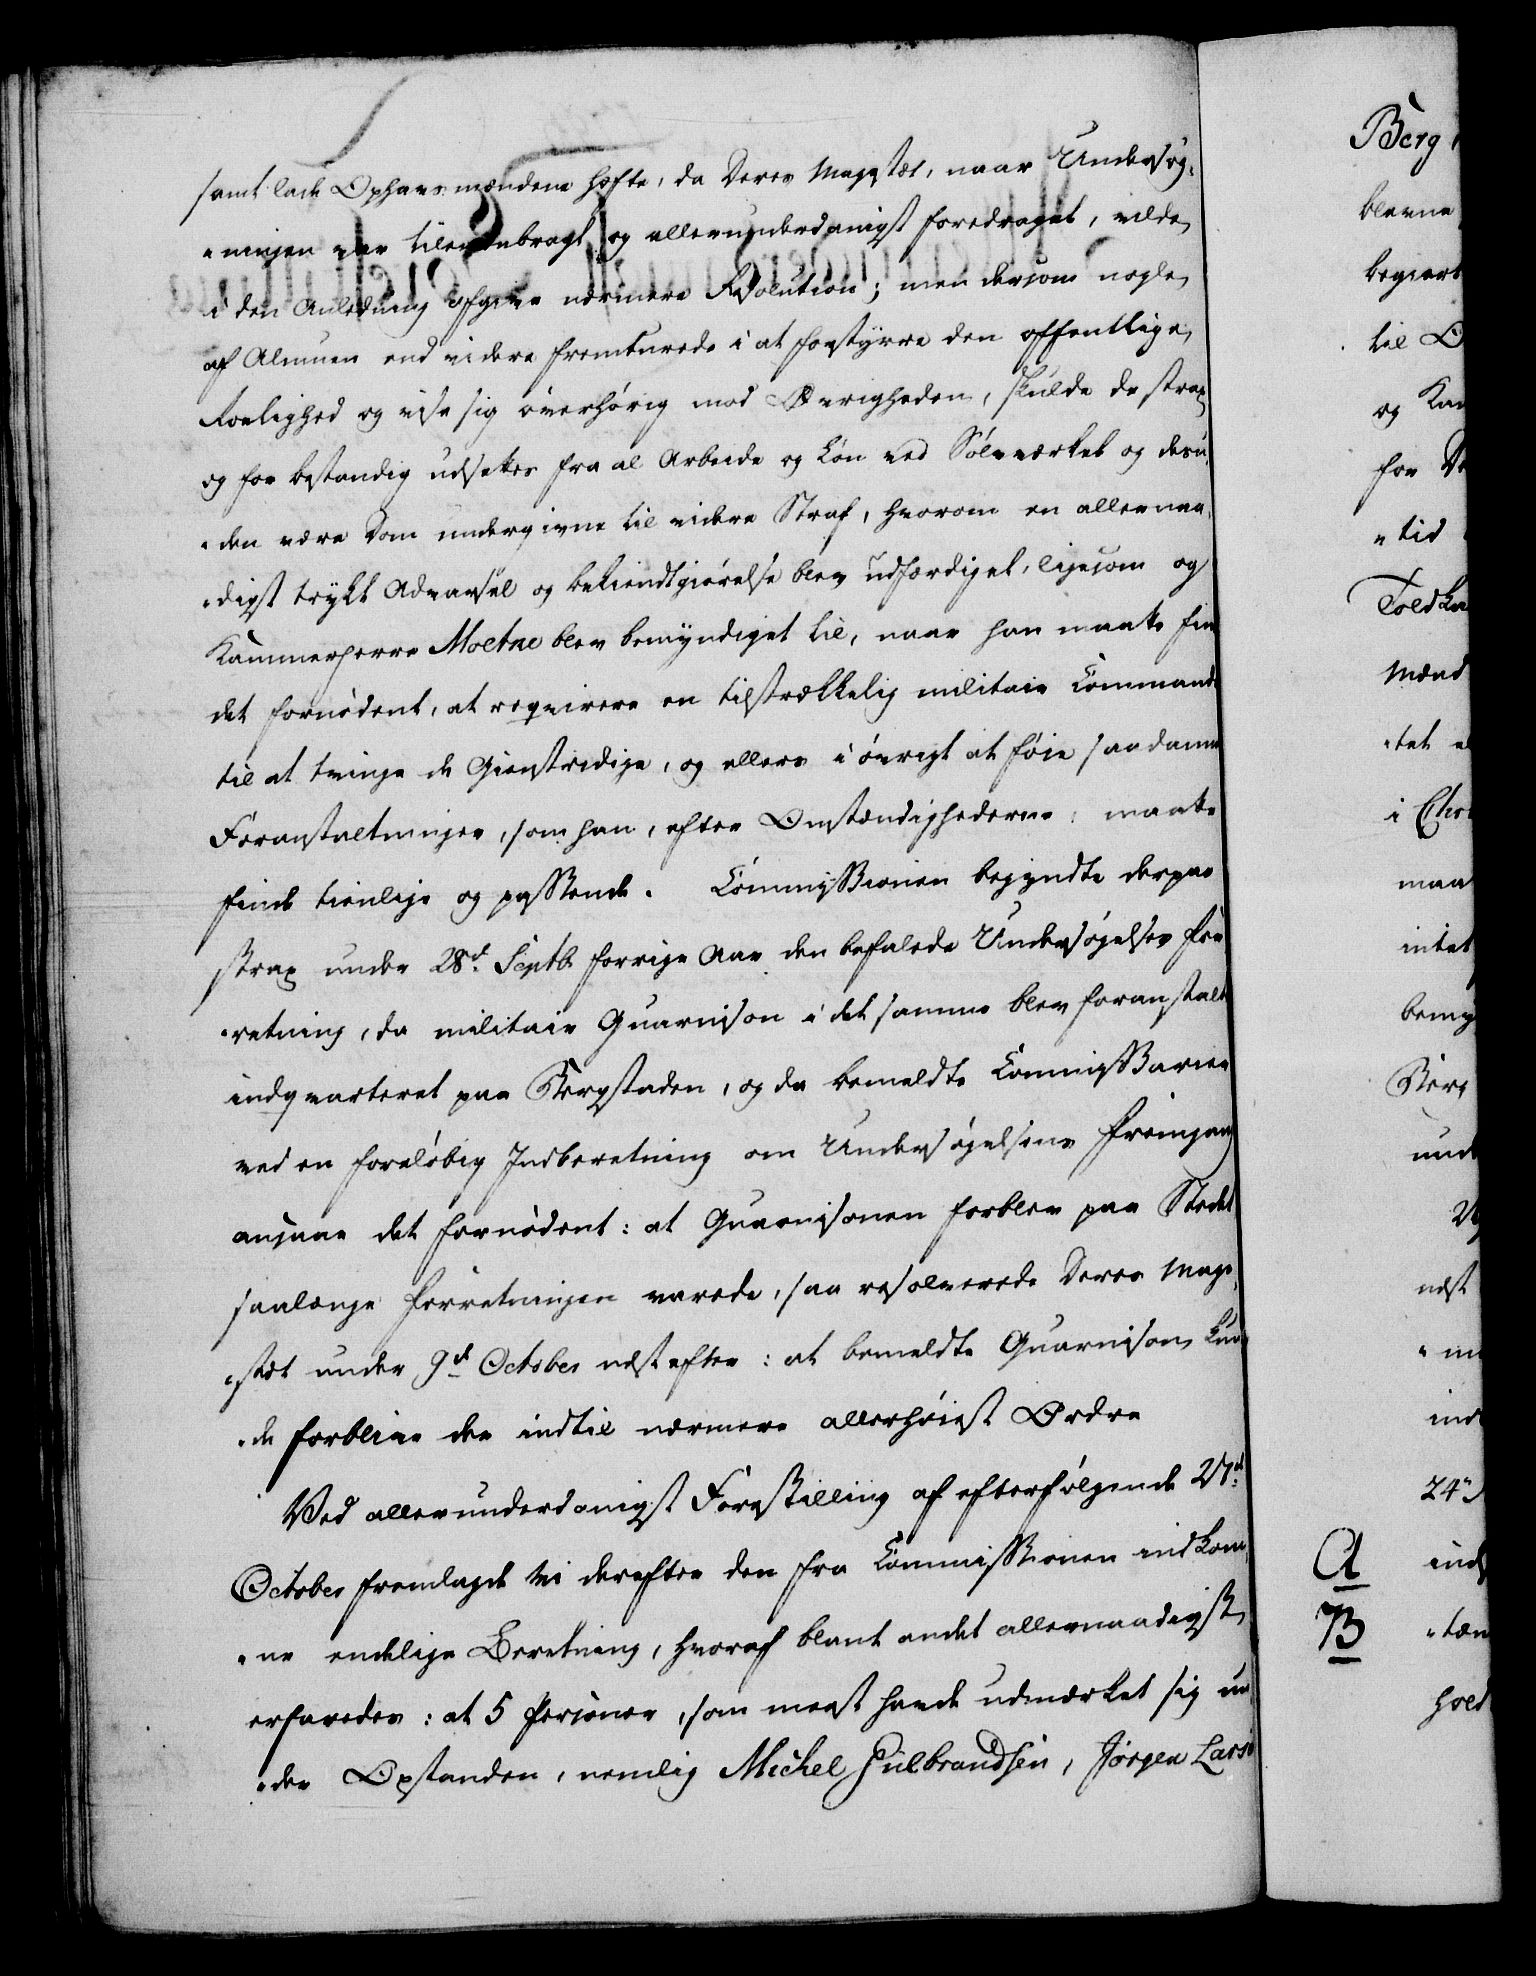 samt lade Ophavsmændene hefte, da Deres Majestæt, naar Undersøg-
"ningen var tilendebragt og allerunderdanigst foredraget, vilde
i den Anledning afgive nærmere Resolution; men dersom nogle
af Almuen end videre fremturede i at forstyrre den offentlige
Roelighed og viise sig overhørig mod Øvrigheden, skulde de strax
og for bestandig udsettes fra al Arbeide og Løn ved Sølvværket og desu-
"den være Dom undergivne til videre Straf, hvorom en allernaa-
"digst trykt Advarsel og bekiendtgiørelse blev udfærdiget, ligesom og
Kammerherre Moltke blev bemyndiget til, naar han maatte fin
det fornødent, at reqvirere en tilstrækkelig militair Command
til at tvinge de Gienstridige, og ellers i øvrigt at føie saadanne
Foranstaltninger, som han, efter Omstændighederne, maatte
finde tienlige og passende. Commissionen begyndte derpaa
strax under 28d Septb. forrige Aar den befalede Undersøgelses For
"retning, da militair Guarnison i det samme blev foranstalt
indqvarteret paa Bergstaden, og da bemeldte Commissarier
ved en foreløbig Indberetning om Undersøgelsens Fremgang
ansaae det fornødent: at Guarnisonen forblev paa Stedet
saalænge Forretningen varede, saa resolverede Deres Maje-
"stæt under 9d October næstefter: at bemeldte Guarnison kun
"de forblive der indtil nærmere allerhøiest Ordre
Ved allerunderdanigst Forestilling af efterfølgende 27d
October fremlagde vi derefter den fra Commissionen indkom-
"ne endelige Beretning, hvoraf blant andet allernaadigst
erfaredes: at 5 Personer, som meest havde udmærket sig un
"der Opstanden, nemlig Michel Gulbrandsen, Jørgen Lars
Berg
blevne
begiert
til O
og Kam
for De
"tid
Toldka
Mænd
"tet
i Chri
maa
intet
bemy
Berg
und
næst
ind
24d
A
ind
B
hold